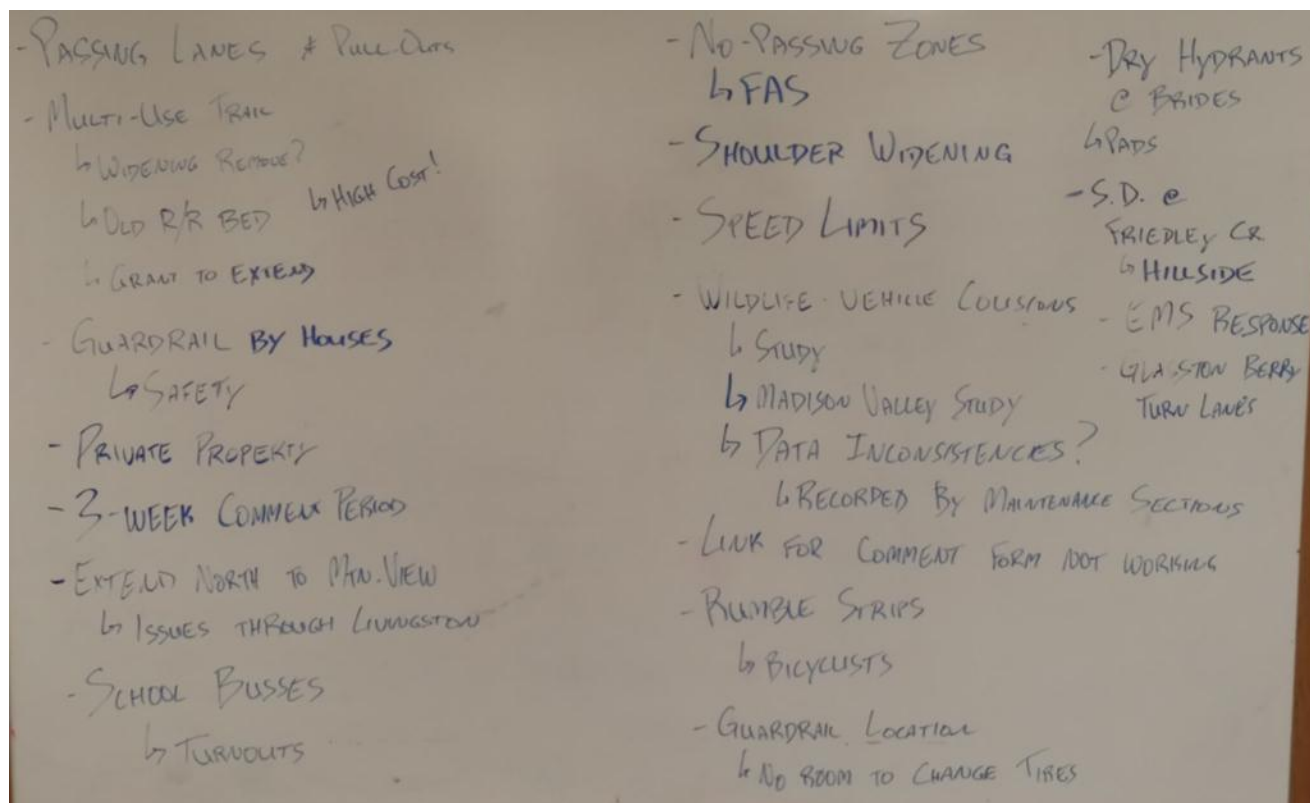 - PASSING LANES & PULL-OUTS
- MULTI-USE TRAIL
↳ WIDENING REMOVE?
↳ OLD R/R BED ↳ HIGH COST!
↳ GRANT TO EXTEND
- GUARDRAIL BY HOUSES
↳ SAFETY
- PRIVATE PROPERTY
- 3-WEEK COMMENT PERIOD
- EXTEND NORTH TO MTN. VIEW
↳ ISSUES THROUGH LIVINGSTON
- SCHOOL BUSSES
↳ TURNOUTS
- NO-PASSING ZONES
↳ FAS
- SHOULDER WIDENING
- SPEED LIMITS
- WILDLIFE-VEHICLE COLISIONS
↳ STUDY
↳ MADISON VALLEY STUDY
↳ DATA INCONSISTENCES?
↳ RECORDED BY MAINTENANCE SECTIONS
- LINK FOR COMMENT FORM NOT WORKING
- RUMBLE STRIPS
↳ BICYCLISTS
- GUARDRAIL LOCATION
↳ NO ROOM TO CHANGE TIRES
- DRY HYDRANTS
@ BRIDES
↳ PADS
- S.D. @
FRIEDLEY CR
↳ HILLSIDE
- EMS RESPONSE
- GLASSTON BERRY
TURN LANES